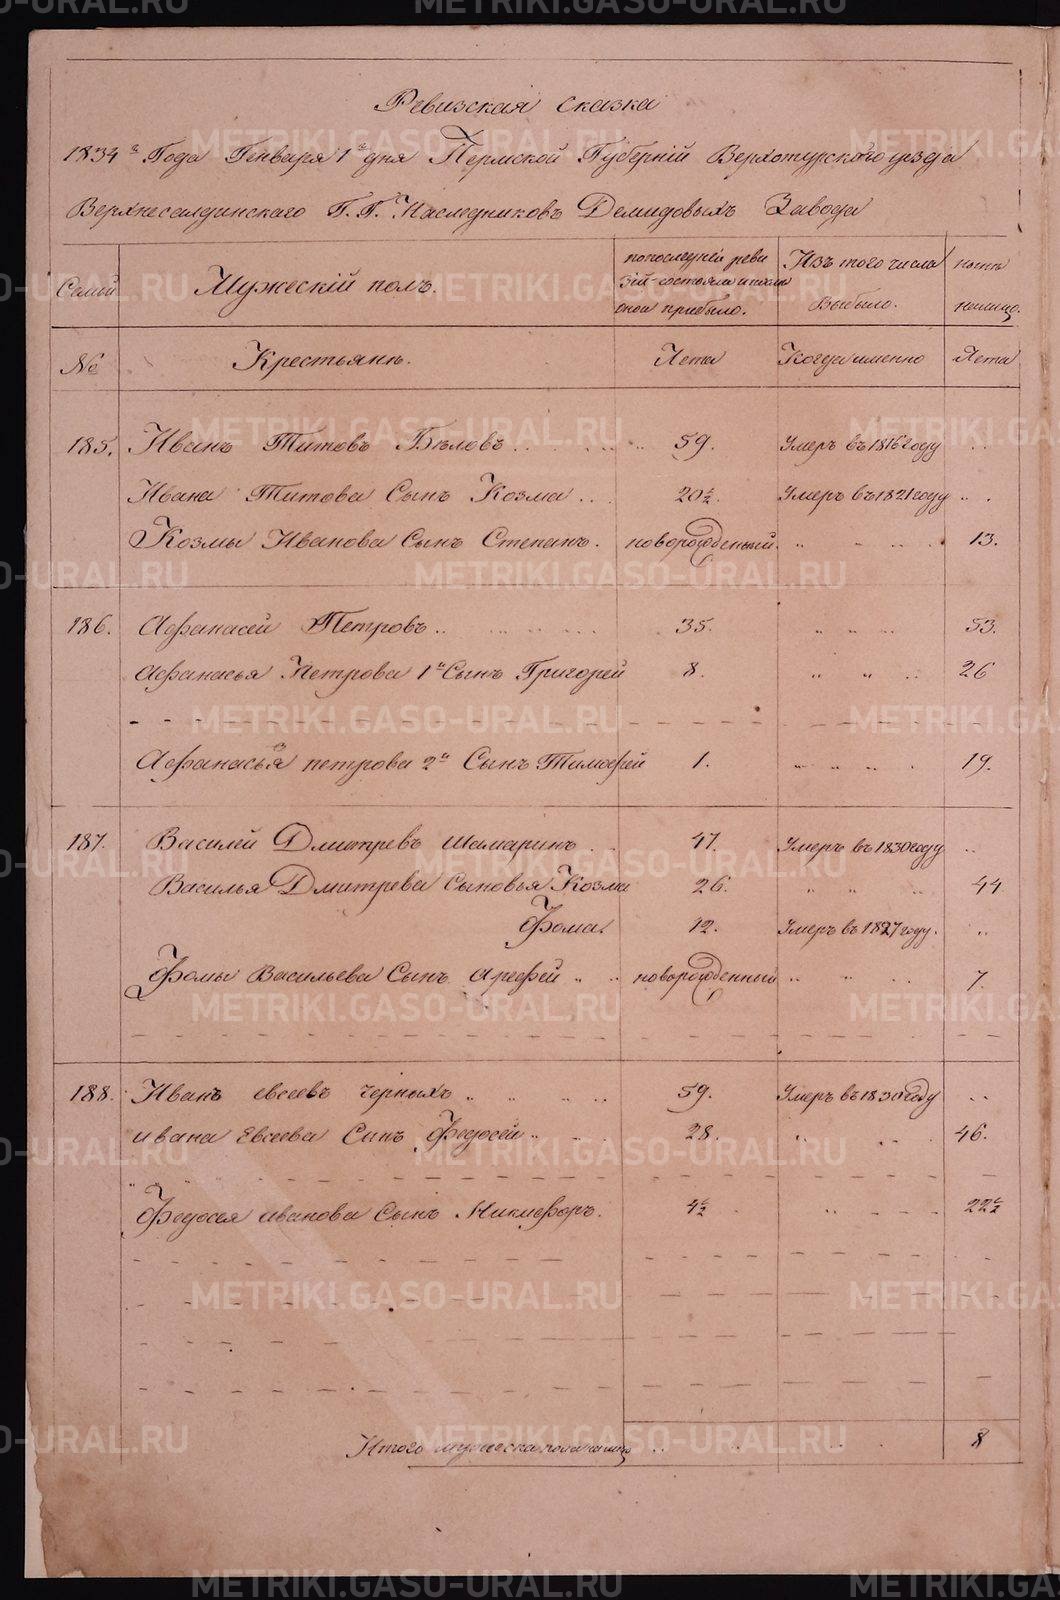 Ревизская сказка
1834го Года Генваря 1го дня Пермской Губерніи Верхотурского уезда
Верхнесалдинскаго Г.Г. Наследниковъ Демидовыхъ Завода
Семьи Мужескій полъ. попоследней реви Изъ того числа ныне
зій состояло и после
оной прибыло. Выбыло. налицо.
№ Крестьяне. Лета Когда именно Лета
185. Иванъ Титовъ Бѣловъ 59. Умеръ въ 1816 году
Ивана Титова Сынъ Козма 20½. Умеръ въ 1821 году
Козмы Иванова Сынъ Степанъ. новорожденный. 13.
186. Афанасей Петровъ 35. 53.
Афанасья Петрова 1й Сынъ Григорей 8. 26
Афанасья петрова 2й Сынъ Тимофей 1. 19.
187. Василей Дмитревъ Шамаринъ 47. Умеръ въ 1830 году
Василья Дмитрева Сыновья Козма 26. 44
Фома. 12. Умеръ въ 1827 году.
Фомы Васильева Сынъ Арефей новорожденный 7.
188. Иванъ евсеевъ черныхъ 59. Умеръ въ 1830 году
ивана Евсеева Сынъ Федосей 28. 46.
Федосея иванова Сынъ Никифоръ. 4½ 22½
Итого мужеска пола налицо 8
METRIKI.GASO-URAL.RU